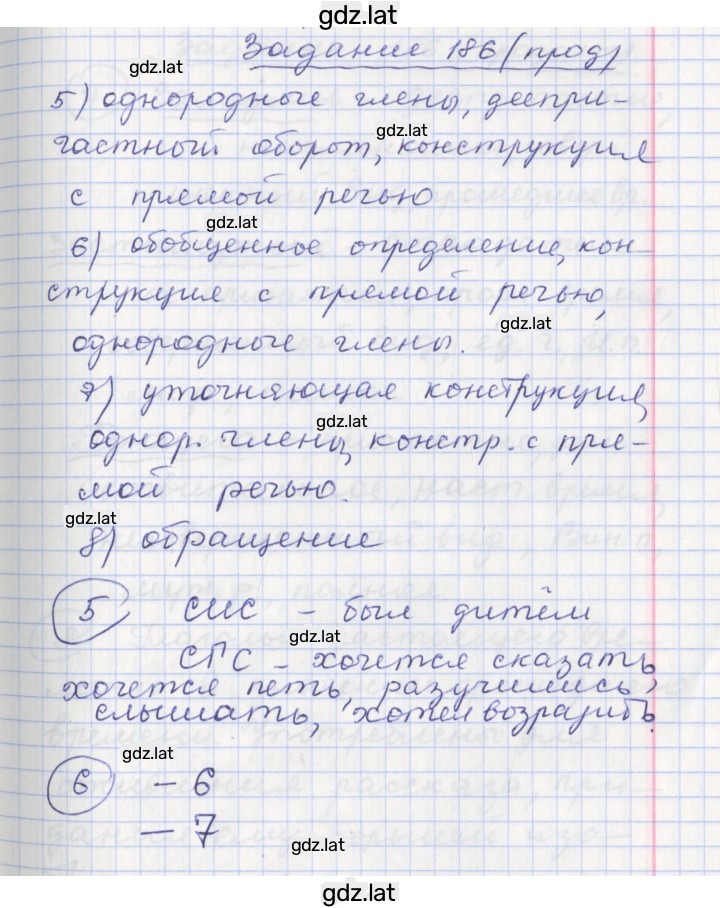 gdz.lat
Задание 186 (прод)
gdz.lat
5) однородные члены, деепри-
gdz.lat
частный оборот, конструкция
с прямой речью
gdz.lat
6) обобщённое определение, кон-
струкция с прямой речью,
gdz.lat
однородные члены.
7) уточняющая конструкция,
gdz.lat
однор. члены, констр. с пря-
мой речью.
gdz.lat
8) обращение
5 СИС - был дитём
gdz.lat
СГС - хочется сказать,
хочется петь, разучились
слышать, хотел возразить.
gdz.lat
6 - 6
- 7
gdz.lat
gdz.lat